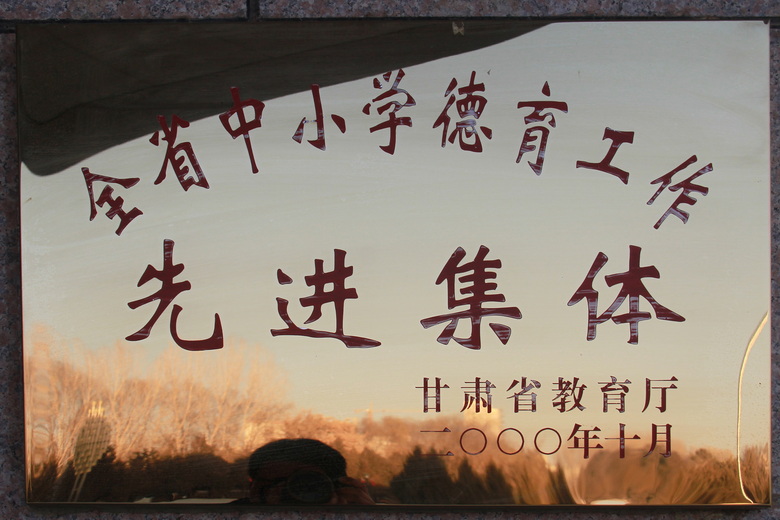 全省中小学德育工作
先进集体
甘肃省教育厅
二〇〇〇年十月